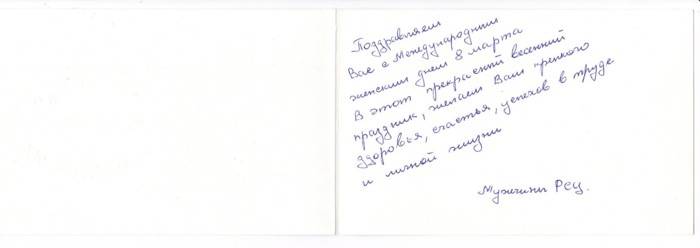 Поздравляем
Вас с Международным
женским днем 8 марта
В этот прекрасный весенний
праздник, желаем Вам крепкого
здоровья, счастья, успехов в труде
и личной жизни
Мужчины Рец.